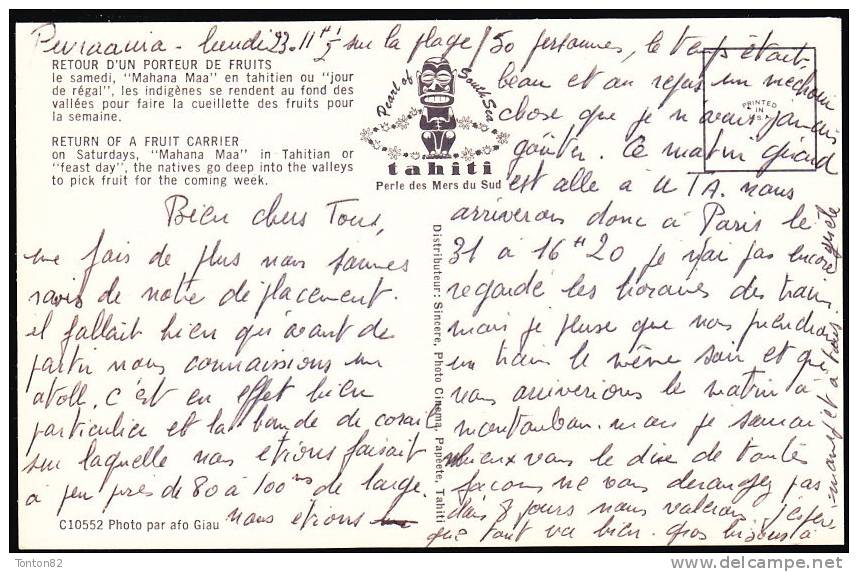 lundi 23. 11H 1/2 sur la plage 50 personnes, le temps était
RETOUR D'UN PORTEUR DE FRUITS
le samedi, "Mahana Maa" en tahitien ou "jour
de régal", les indigènes se rendent au fond des
vallées pour faire la cueillette des fruits pour
la semaine.
RETURN OF A FRUIT CARRIER
on Saturdays, "Mahana Maa" in Tahitian or
"feast day", the natives go deep into the valleys
to pick fruit for the coming week.
Pearl of South Sea
tahiti
Perle des Mers du Sud
PRINTED
IN
Bien chers Tous,
une fois de plus nous sommes
ravis de notre déplacement.
il fallait bien qu'avant de
partir nous connaissions un
atoll. c'est en effet bien
particulier et la bande de corail
sur laquelle nous étions faisait
à peu près de 80 à 100 ms de large.
nous étions
C10552 Photo par afo Giau
Distributeur: Sincere, Photo Cinema, Papeete, Tahiti
beau et on un mechoui
chose que je n'avais jamais
goûter. Ce matin Gérard
est allé à UTA. nous
arriverons donc à Paris le
31 à 16H20 je n'ai pas encore
regardé les horaires des trains
mais je pense que nous prendrons
un train le même soir et que
nous arriverions le matin à
montauban. mais je
mieux vous le dire de toutes
façons ne vous derangez pas
dans 8 jours nous J'espère
que tout va bien. gros bisous à
et à tous.
Tonton82
delcampe.net